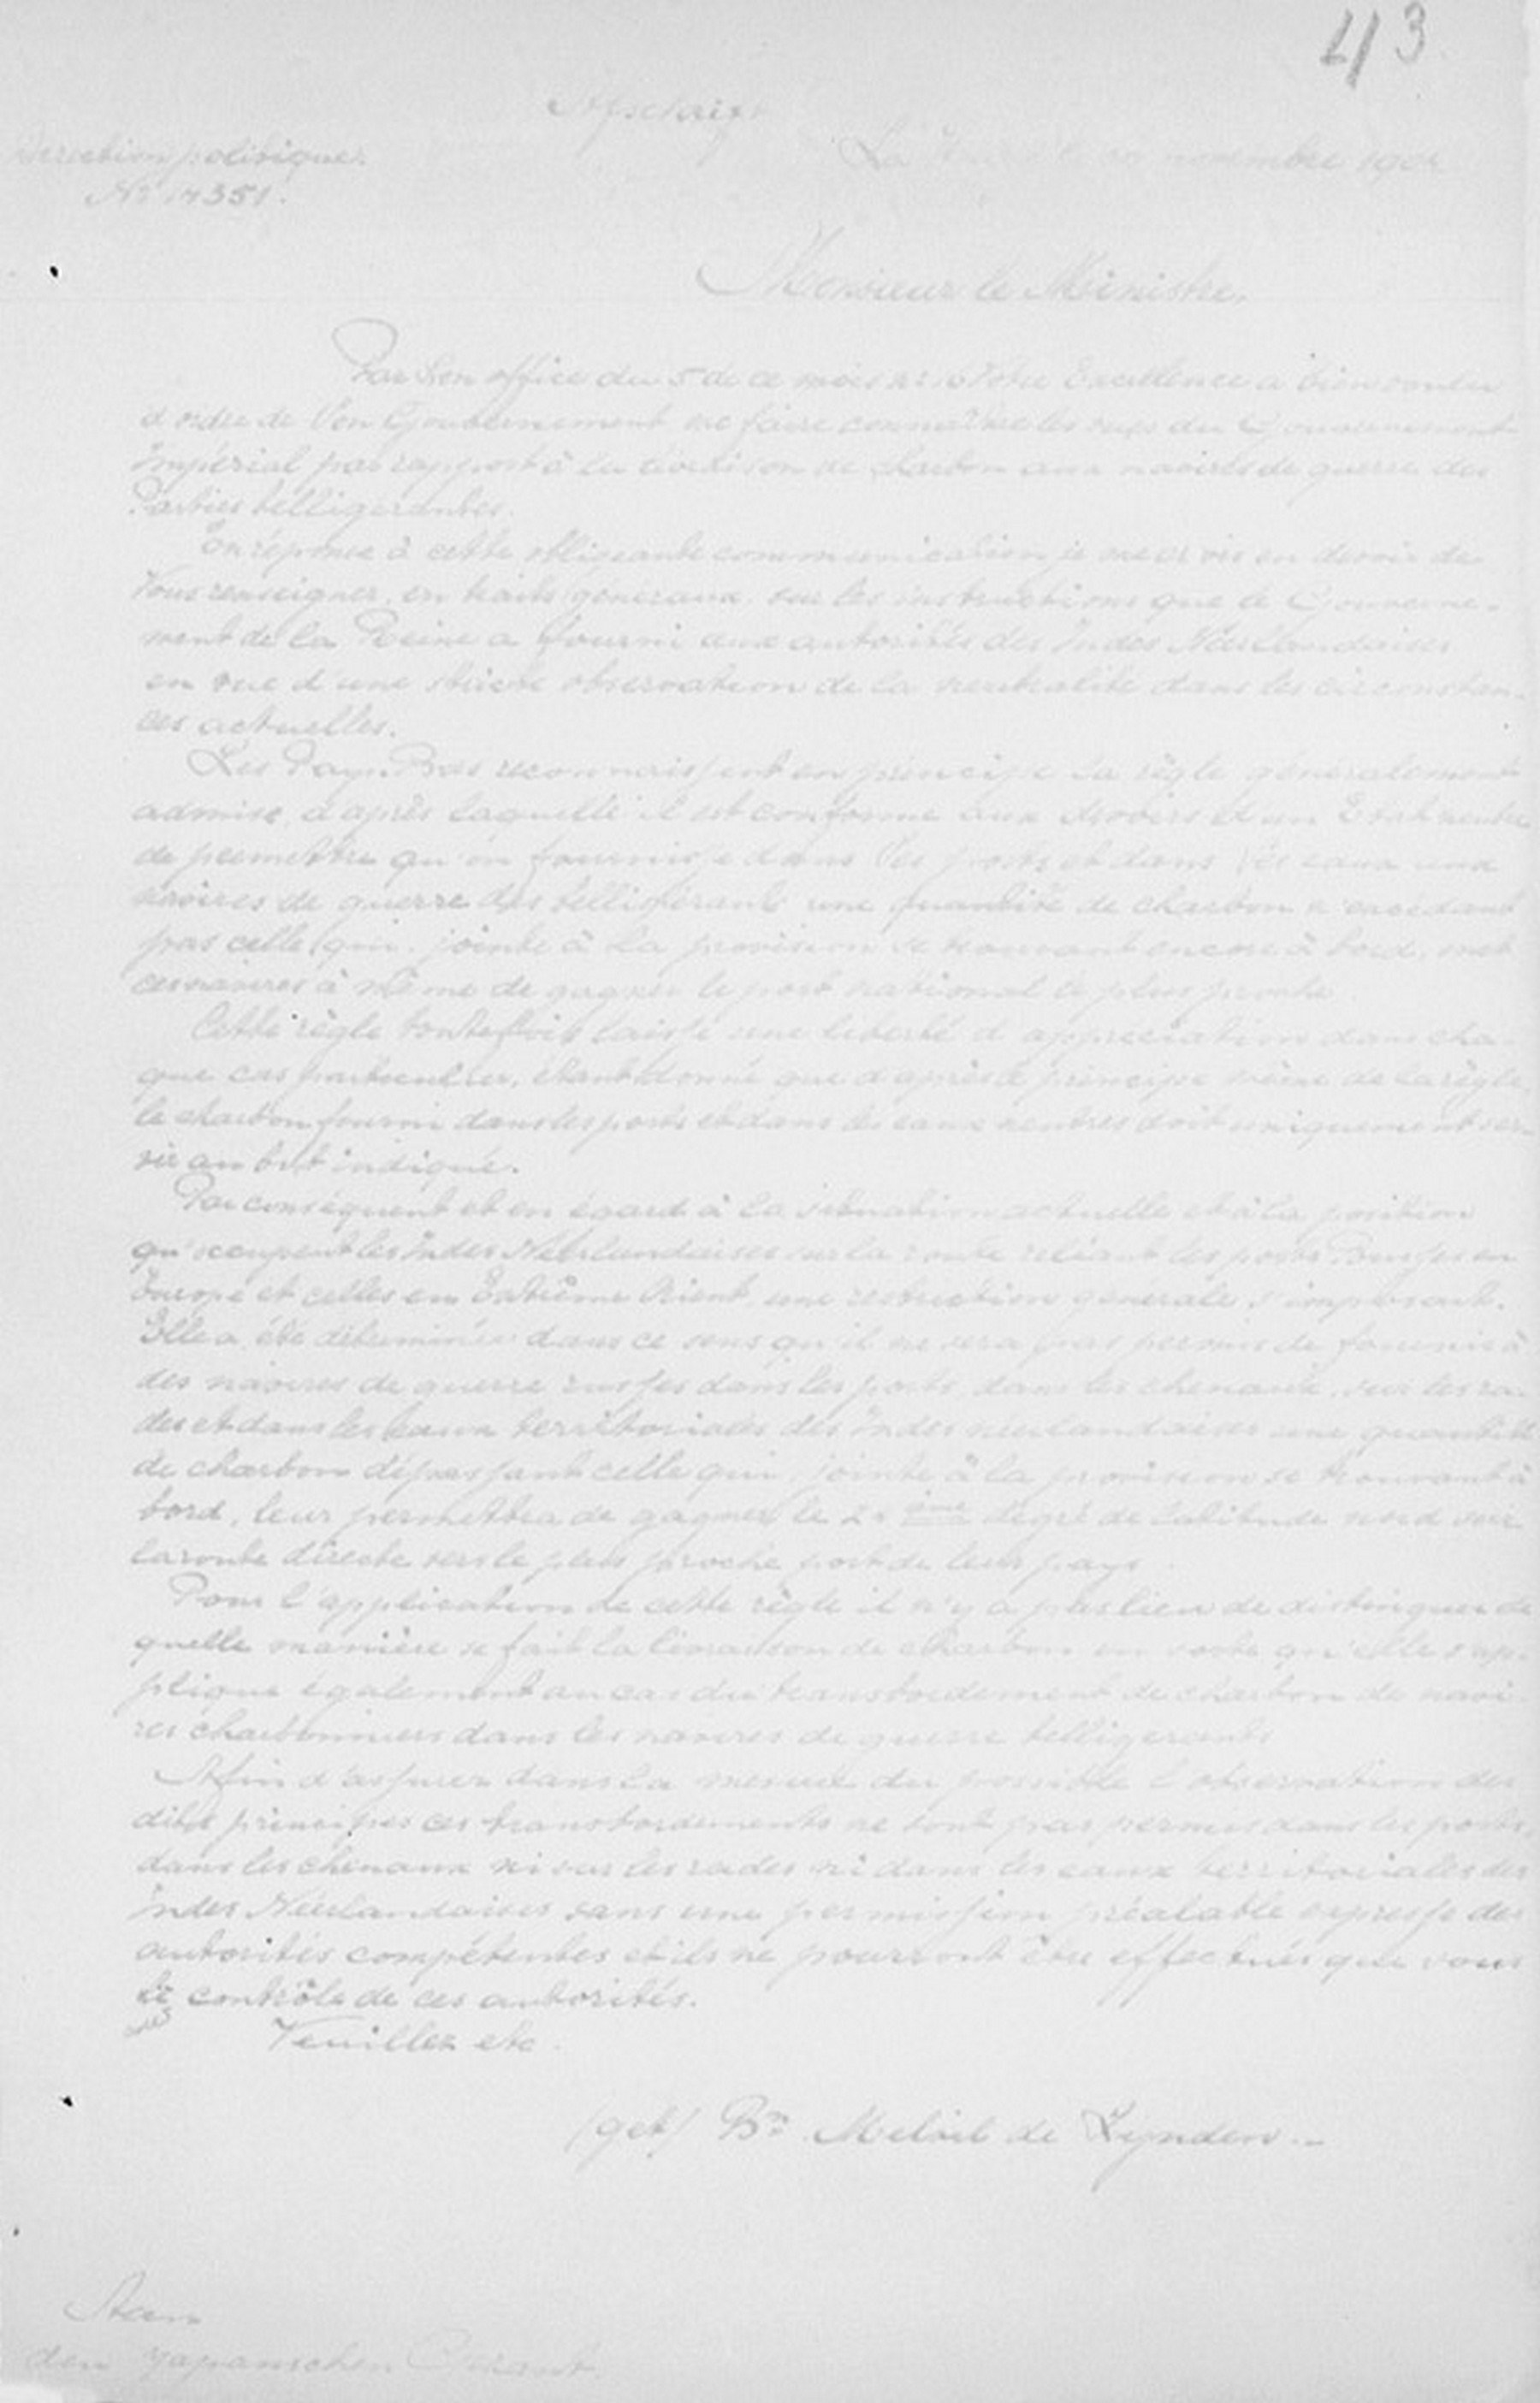 413
Afschrift
Direction politique.
La Haye le novembre 1904
No 14351.
Monsieur le Ministre,
Par Son office du 5 de ce mois Votre Excellence a bien voulu
d'ordre de Son Gouvernement me faire connaître les vues du Gouvernement
Impérial par rapport à la livraison de charbon aux navires de guerre des
Parties belligerantes.
En réponse à cette obligeante communication je me crois en devoir de
Vous renseigner, en traits généraux, sur les instructions que le Gouverne-
ment de la Reine a fourni aux autorités des Indes Néerlandaises
en vue d'une stricte observation de la neutralité dans les circonstan-
ces actuelles.
Les Pays-Bas reconnaissent en principe la règle généralement
admise, d'après laquelle il est conforme aux devoirs d'un Etat neutre
de permettre qu'on fournisse dans Ses ports et dans Ses eaux aux
navires de guerre des belligérants une quantité de charbon n'excédant
pas celle qui, jointe à la provision se trouvant encore à bord, met
ces navires à même de gagner le port national le plus proche
Cette règle toutefois laisse une liberté d'appreciation dans cha-
que cas particulier, étant donné que d'après le principe même de la règle
le charbon fourni dans les ports et dans les eaux neutres doit uniquement ser-
vir au but indiqué.
Par conséquent et en égard à la situation actuelle et à la position
qu'occupent les Indes Néerlandaises sur la route reliant les ports Russes en
Europe et celles en Extrême Orient, une restriction générale s'imposait.
Elle a été déterminée dans ce sens qu'il ne sera pas permis de fournir à
des navires de guerre russes dans les ports, dans les chenaux, sur les ra-
des et dans les eaux territoriales des Indes néerlandaises une quantité
de charbon dépassant celle qui, jointe à la provision se trouvant à
bord, leur permettra de gagner le ème degré de latitude nord sur
la route directe vers le plus proche port de leur pays.
Pour l'application de cette règle il n'y a pas lieu de distinguer de
quelle manière se fait la livraison de charbon en sorte qu'elle s'ap-
plique également au cas du transbordement de charbon de navi-
res charbonniers dans les navires de guerre belligerants
Afin d'assurer dans la mesure du possible l'observation des
dits principes ces transbordements ne sont pas permis dans les ports,
dans les chenaux ni sur les rades ni dans les eaux territoriales des
Indes Néerlandaises sans une permission préalable expresse des
autorités compétentes et ils ne pourront être effectués que sous
le contrôle de ces autorités.
Veuillez etc.
(get) Bn. Melvil de Lynden.-
Aan
den Japanschen Gezant.